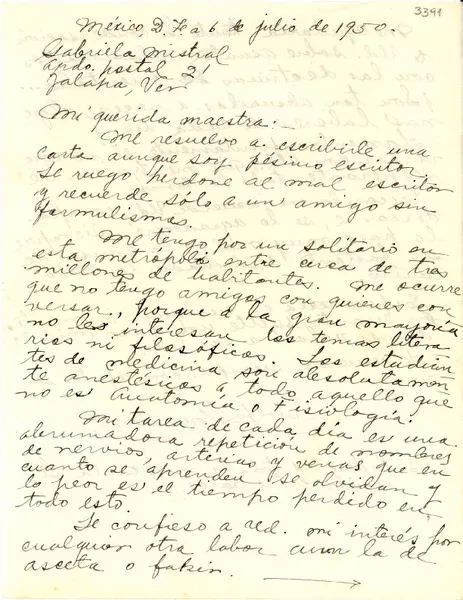 3391
México, D. F. a 6 de julio de 1950.
Gabriela Mistral
Apdo. postal 21
Jalapa, Ver.
Mi querida maestra:-
Me resuelvo a escribirle una
carta aunque soy pésimo escritor
Le ruego perdone al mal escritor
y recuerde sólo a un amigo sin
formulismos.
Me tengo por un solitario en
esta metrópoli entre cerca de tres
millones de habitantes. Me ocurre
que no tengo amigos con quienes con
versar, porque a la gran mayoría
no les interesan los temas litera
rios ni filosóficos. Los estudian
tes de medicina son absolutamen
te anestésicos a todo aquello que
no es Anatomía o Fisiología.
Mi tarea de cada día es una
abrumadora repetición de nombres
de nervios, arterias y venas que en
cuanto se aprenden se olvidan y
lo peor es el tiempo perdido en
todo esto.
Le confieso a Ud. mi interés por
cualquier otra labor aun la de
asceta o fakir.